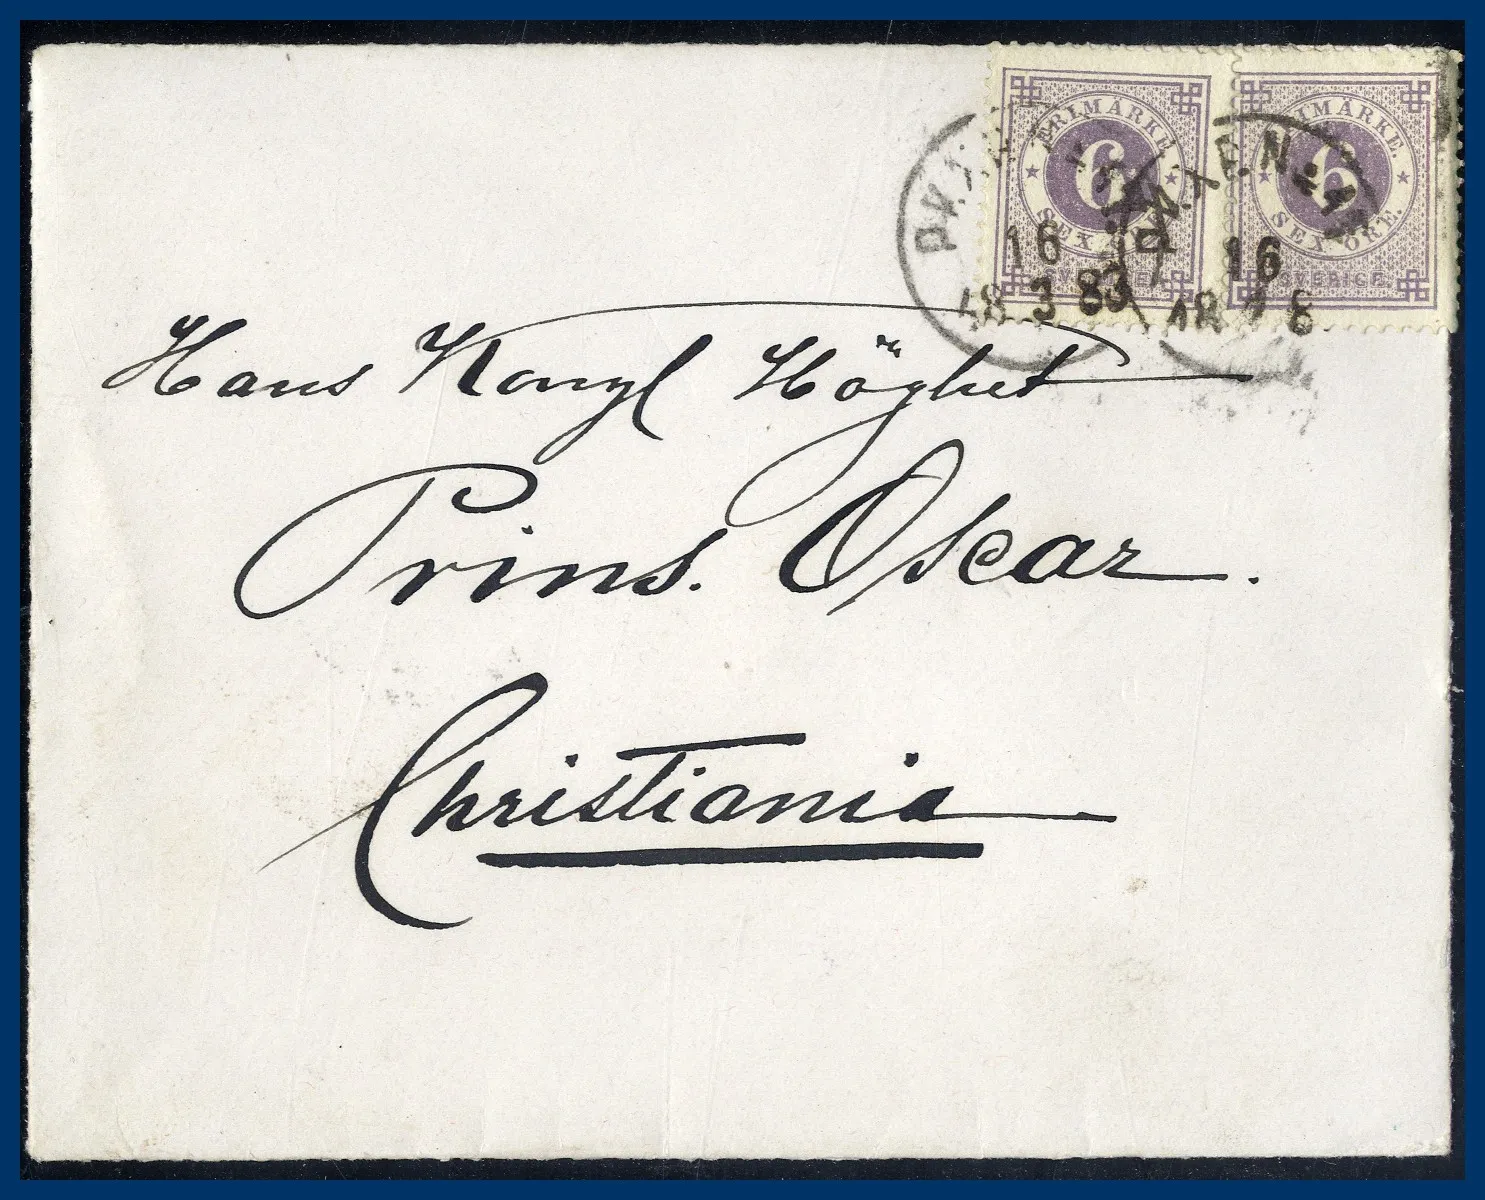 FRIMÄRKE.
6
SEX ÖRE.
SVERIGE.
FRIMÄRKE.
6
SEX ÖRE.
SVERIGE.
16
18 3 83
16
18
Hans Kongl Höghet
Prins. Oskar.
Christiania